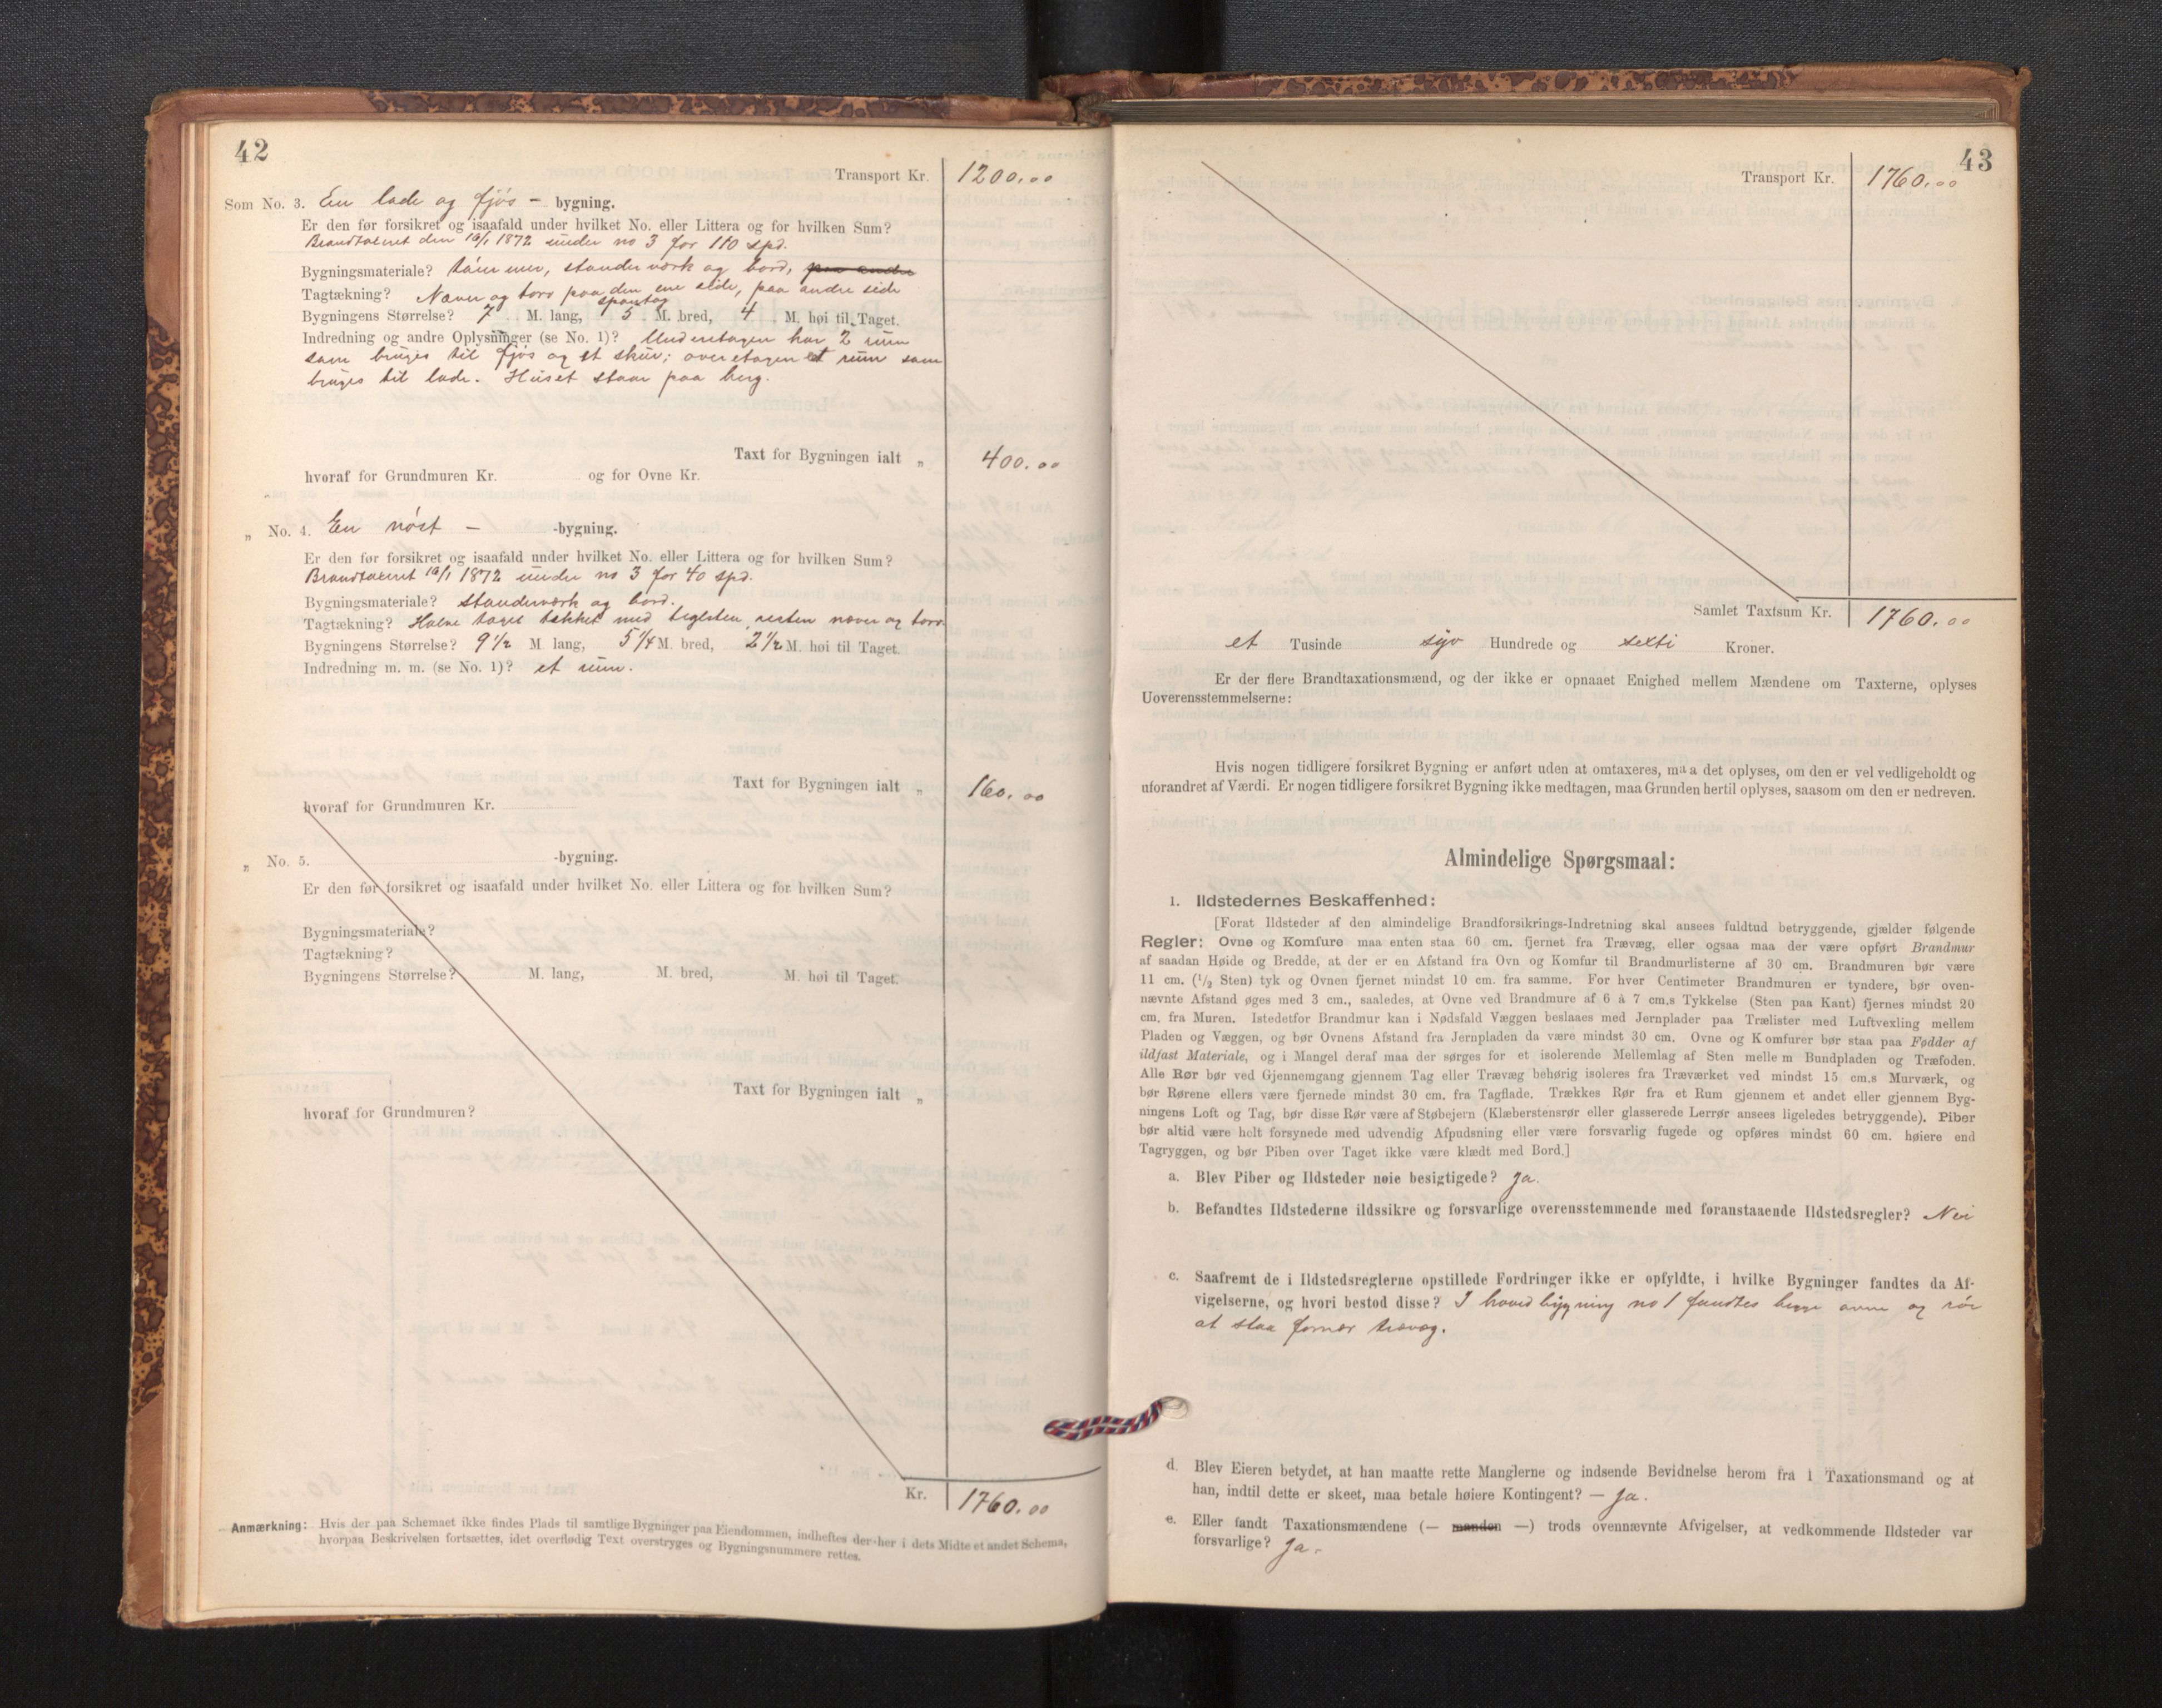 42
Transport Kr. 1200.00
Som No. 3. En lade og fjøs – bygning.
Er den før forsikret og isaafald under hvilket No. eller Littera og for hvilken Sum?
Brandtaxeret den 16/1 1872 under no 3 for 110 spd.
Bygningsmateriale? tømmer, standerværk og bord, paa andre
Tagtækning? Næver og torv paa den ene side, paa andre side
spontag
Bygningens Størrelse? 7 M. lang, 5 M. bred, 4 M. høi til Taget.
Indredning og andre Oplysninger (se No. 1)? Underetagen har 2 rum
som bruges til fjøs og et skur; overetagen et rum som
bruges til lade. Huset staar paa berg.
Taxt for Bygningen ialt „ 400.00
hvoraf for Grundmuren Kr. og for Ovne Kr.
„ No. 4. En nøst – -bygning.
Er den før forsikret og isaafald under hvilket No. eller Littera og for hvilken Sum?
Brandtaxeret 16/1 1872 under no 3 for 40 spd.
Bygningsmateriale? standerværk og bord.
Tagtækning? Halve taget tækket med teglsten, resten næver og torv.
Bygningens Størrelse? 9 1/2 M lang, 5 1/4 M. bred, 2 1/2 M. høi til Taget.
Indredning m. m. (se No. 1)? et rum.
Taxt for Bygningen ialt „ 160.00
hvoraf for Grundmuren Kr.
„ No. 5. -bygning.
Er den før forsikret og isaafald under hvilket No. eller Littera og for hvilken Sum?
Bygningsmateriale?
Tagtækning?
Bygningens Størrelse? M. lang, M. bred, M. høi til Taget.
Taxt for Bygningen ialt „
hvoraf for Grundmuren?
Kr. 1760.00
Anmærkning: Hvis der paa Schemaet ikke findes Plads til samtlige Bygninger paa Eiendommen, indheftes der her i dets Midte et andet Schema,
hvorpaa Beskrivelsen fortsættes, idet overflødig Text overstryges og Bygningsnummere rettes.
43
Transport Kr. 1760.00
Samlet Taxtsum Kr. 1760.00
et Tusinde syv Hundrede og sexti Kroner.
Er der flere Brandtaxationsmænd, og der ikke er opnaaet Enighed mellem Mændene om Taxterne, oplyses
Uoverensstemmelserne:
Hvis nogen tidligere forsikret Bygning er anført uden at omtaxeres, maa det oplyses, om den er vel vedligeholdt og
uforandret af Værdi. Er nogen tidligere forsikret Bygning ikke medtagen, maa Grunden hertil oplyses, saasom om den er nedreven.
Almindelige Spørgsmaal:
1. Ildstedernes Beskaffenhed:
[Forat Ildsteder af den almindelige Brandforsikrings-Indretning skal ansees fuldtud betryggende, gjælder følgende
Regler: Ovne og Komfure maa enten staa 60 cm. fjernet fra Trævæg, eller ogsaa maa der være opført Brandmur
af saadan Høide og Bredde, at der er en Afstand fra Ovn og Komfur til Brandmurlisterne af 30 cm. Brandmuren bør være
11 cm. (1/2 Sten) tyk og Ovnen fjernet mindst 10 cm. fra samme. For hver Centimeter Brandmuren er tyndere, bør oven-
nævnte Afstand øges med 3 cm., saaledes, at Ovne ved Brandmure af 6 à 7 cm.s Tykkelse (Sten paa Kant) fjernes mindst 20
cm. fra Muren. Istedetfor Brandmur kan i Nødsfald Væggen beslaaes med Jernplader paa Trælister med Luftvexling mellem
Pladen og Væggen, og bør Ovnens Afstand fra Jernpladen da være mindst 30 cm. Ovne og Komfurer bør staa paa Fødder af
ildfast Materiale, og i Mangel deraf maa der sørges for et isolerende Mellemlag af Sten mellem Bundpladen og Træfoden.
Alle Rør bør ved Gjennemgang gjennem Tag eller Trævæg behørig isoleres fra Træværket ved mindst 15 cm.s Murværk, og
bør Rørene ellers være fjernede mindst 30 cm. fra Tagflade. Trækkes Rør fra et Rum gjennem et andet eller gjennem Byg-
ningens Loft og Tag, bør disse Rør være af Støbejern (Klæberstensrør eller glasserede Lerrør ansees ligeledes betryggende). Piber
bør altid være helt forsynede med udvendig Afpudsning eller være forsvarlig fugede og opføres mindst 60 cm. høiere end
Tagryggen, og bør Piben over Taget ikke være klædt med Bord.]
a. Blev Piber og Ildsteder nøie besigtigede? Ja.
b. Befandtes Ildstederne ildssikre og forsvarlige overensstemmende med foranstaaende Ildstedsregler? Nei
c. Saafremt de i Ildstedsreglerne opstillede Fordringer ikke er opfyldte, i hvilke Bygninger fandtes da Af-
vigelserne, og hvori bestod disse? I hovedbygning no 1 fandtes begge ovne og rør
at staa fornær trævæg.
d. Blev Eieren betydet, at han maatte rette Manglerne og indsende Bevidnelse herom fra 1 Taxationsmand og at
han, indtil dette er skeet, maa betale høiere Kontingent? – Ja.
e. Eller fandt Taxationsmændene (— manden —) trods ovennævnte Afvigelser, at vedkommende Ildsteder var
forsvarlige? Ja.